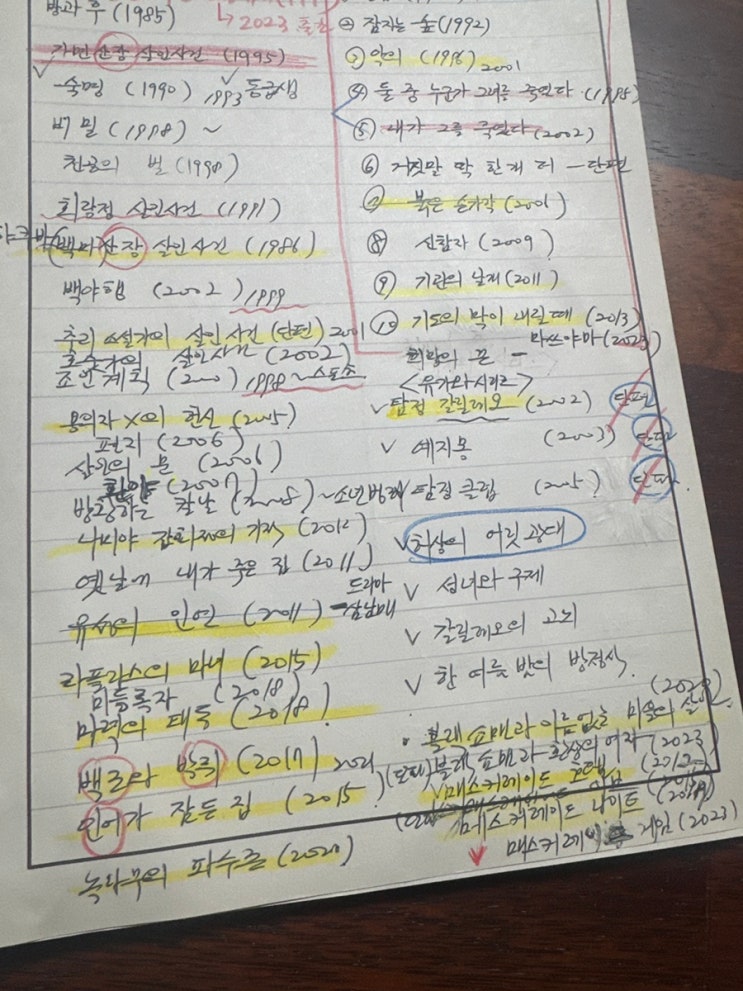 방과 후 (1985)
↳ 2023 출간
가면산장 살인사건 (1995)
숙명 (1990) 1993 동급생
비밀 (1998) ~
천공의 벌 (1998)
회랑정 살인사건 (1991)
백마산장 살인사건 (1986)
백야행 (2002) 1999
추리 소설가의 살인사건 (단편) 2001
호숫가의 살인사건 (2002)
조인계획 (200 ) 1998 ~ 스포츠
용의자 X의 헌신 (2005)
편지 (2006)
사명의 문 (2006)
환야 (2007)
방황하는 칼날 (2008) ~ 소년범죄
나미야 잡화점의 기적 (2012)
옛날에 내가 죽은 집 (2011)
유성의 인연 (2011) 드라마
삼남매
라플라스의 마녀 (2015)
미등록자 (2018)
마력의 태동 (2018)
백조와 박쥐 (2017) 2021
인어가 잠든 집 (2015)
녹나무의 파수꾼 (2020)
② 잠자는 숲 (1992)
③ 악의 (1996) 2001
④ 둘 중 누군가 그녀를 죽였다 (1995)
⑤ 내가 그를 죽였다 (2002)
⑥ 거짓말 딱 한개 더 — 단편
⑦ 붉은 손가락 (2001)
⑧ 신참자 (2009)
⑨ 기린의 날개 (2011)
⑩ 기도의 막이 내릴 때 (2013)
희망의 끈 — 마쓰야마 (2023)
<유가와시리즈>
✓ 탐정 갈릴레오 (2002) 단편
✓ 예지몽 (2003) 단편
탐정 클럽 (2005) 단편
✓ 허상의 어릿광대
✓ 성녀의 구제
✓ 갈릴레오의 고뇌
✓ 한여름 밤의 방정식
• 블랙 쇼맨과 이름없는 마을의 살인 (2020)
(단편) 블랙 쇼맨과 환상의 여자 (2023)
✓ 매스커레이드 호텔 (2012)
매스커레이드 나이트
매스커레이드 게임 (2023)